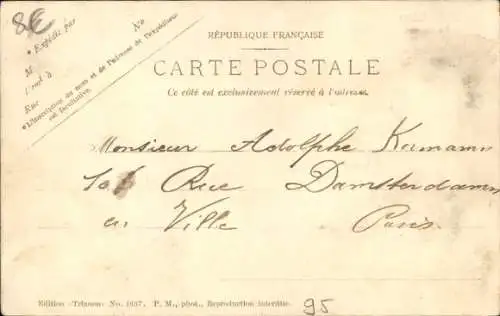 8€
RÉPUBLIQUE FRANÇAISE
CARTE POSTALE
Ce côté est exclusivement réservé à l'adresse.
* Expédié par
M
N°
Rue
*L'inscription du nom et de l'adresse de l'expéditeur
est facultative.
Monsieur Adolphe Kamann
Rue Damsterdamm
en Ville Paris.
Edition «Trianon» No. 1037. P. M., phot., Reproduction interdite.
95